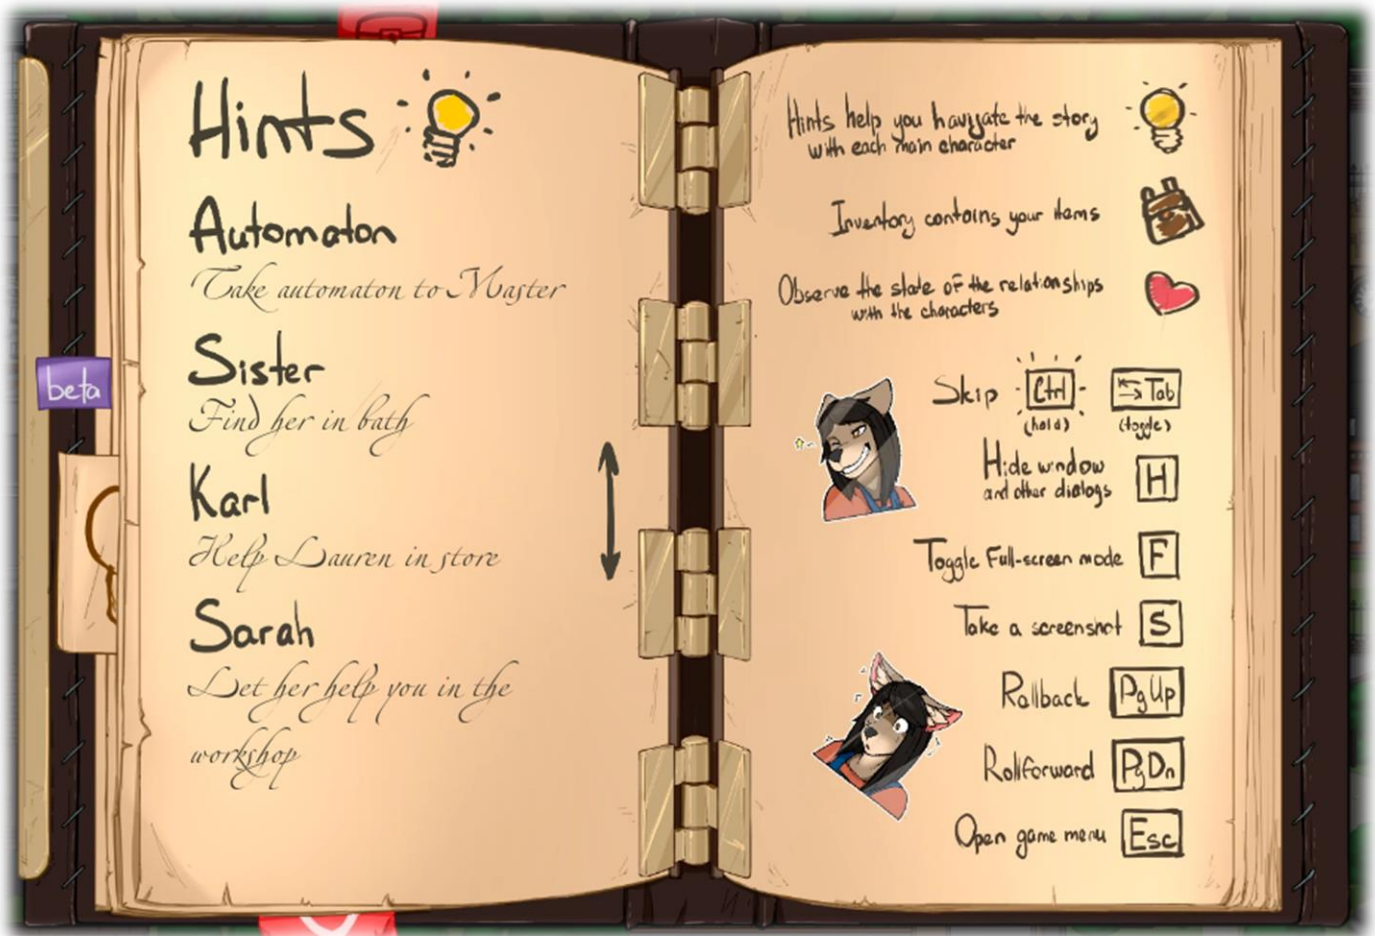 Hints
Automaton
Take automaton to Master
Sister
Find her in bath
Karl
Help Lauren in store
Sarah
Let her help you in the
workshop
beta
Hints help you navigate the story
with each main character
Inventory contains your items
Observe the state of the relationships
with the characters
Skip Ctrl Tab
(hold) (toggle)
Hide window
and other dialogs H
Toggle Full-screen mode F
Take a screenshot S
Rollback PgUp
Rollforward PgDn
Open game menu Esc